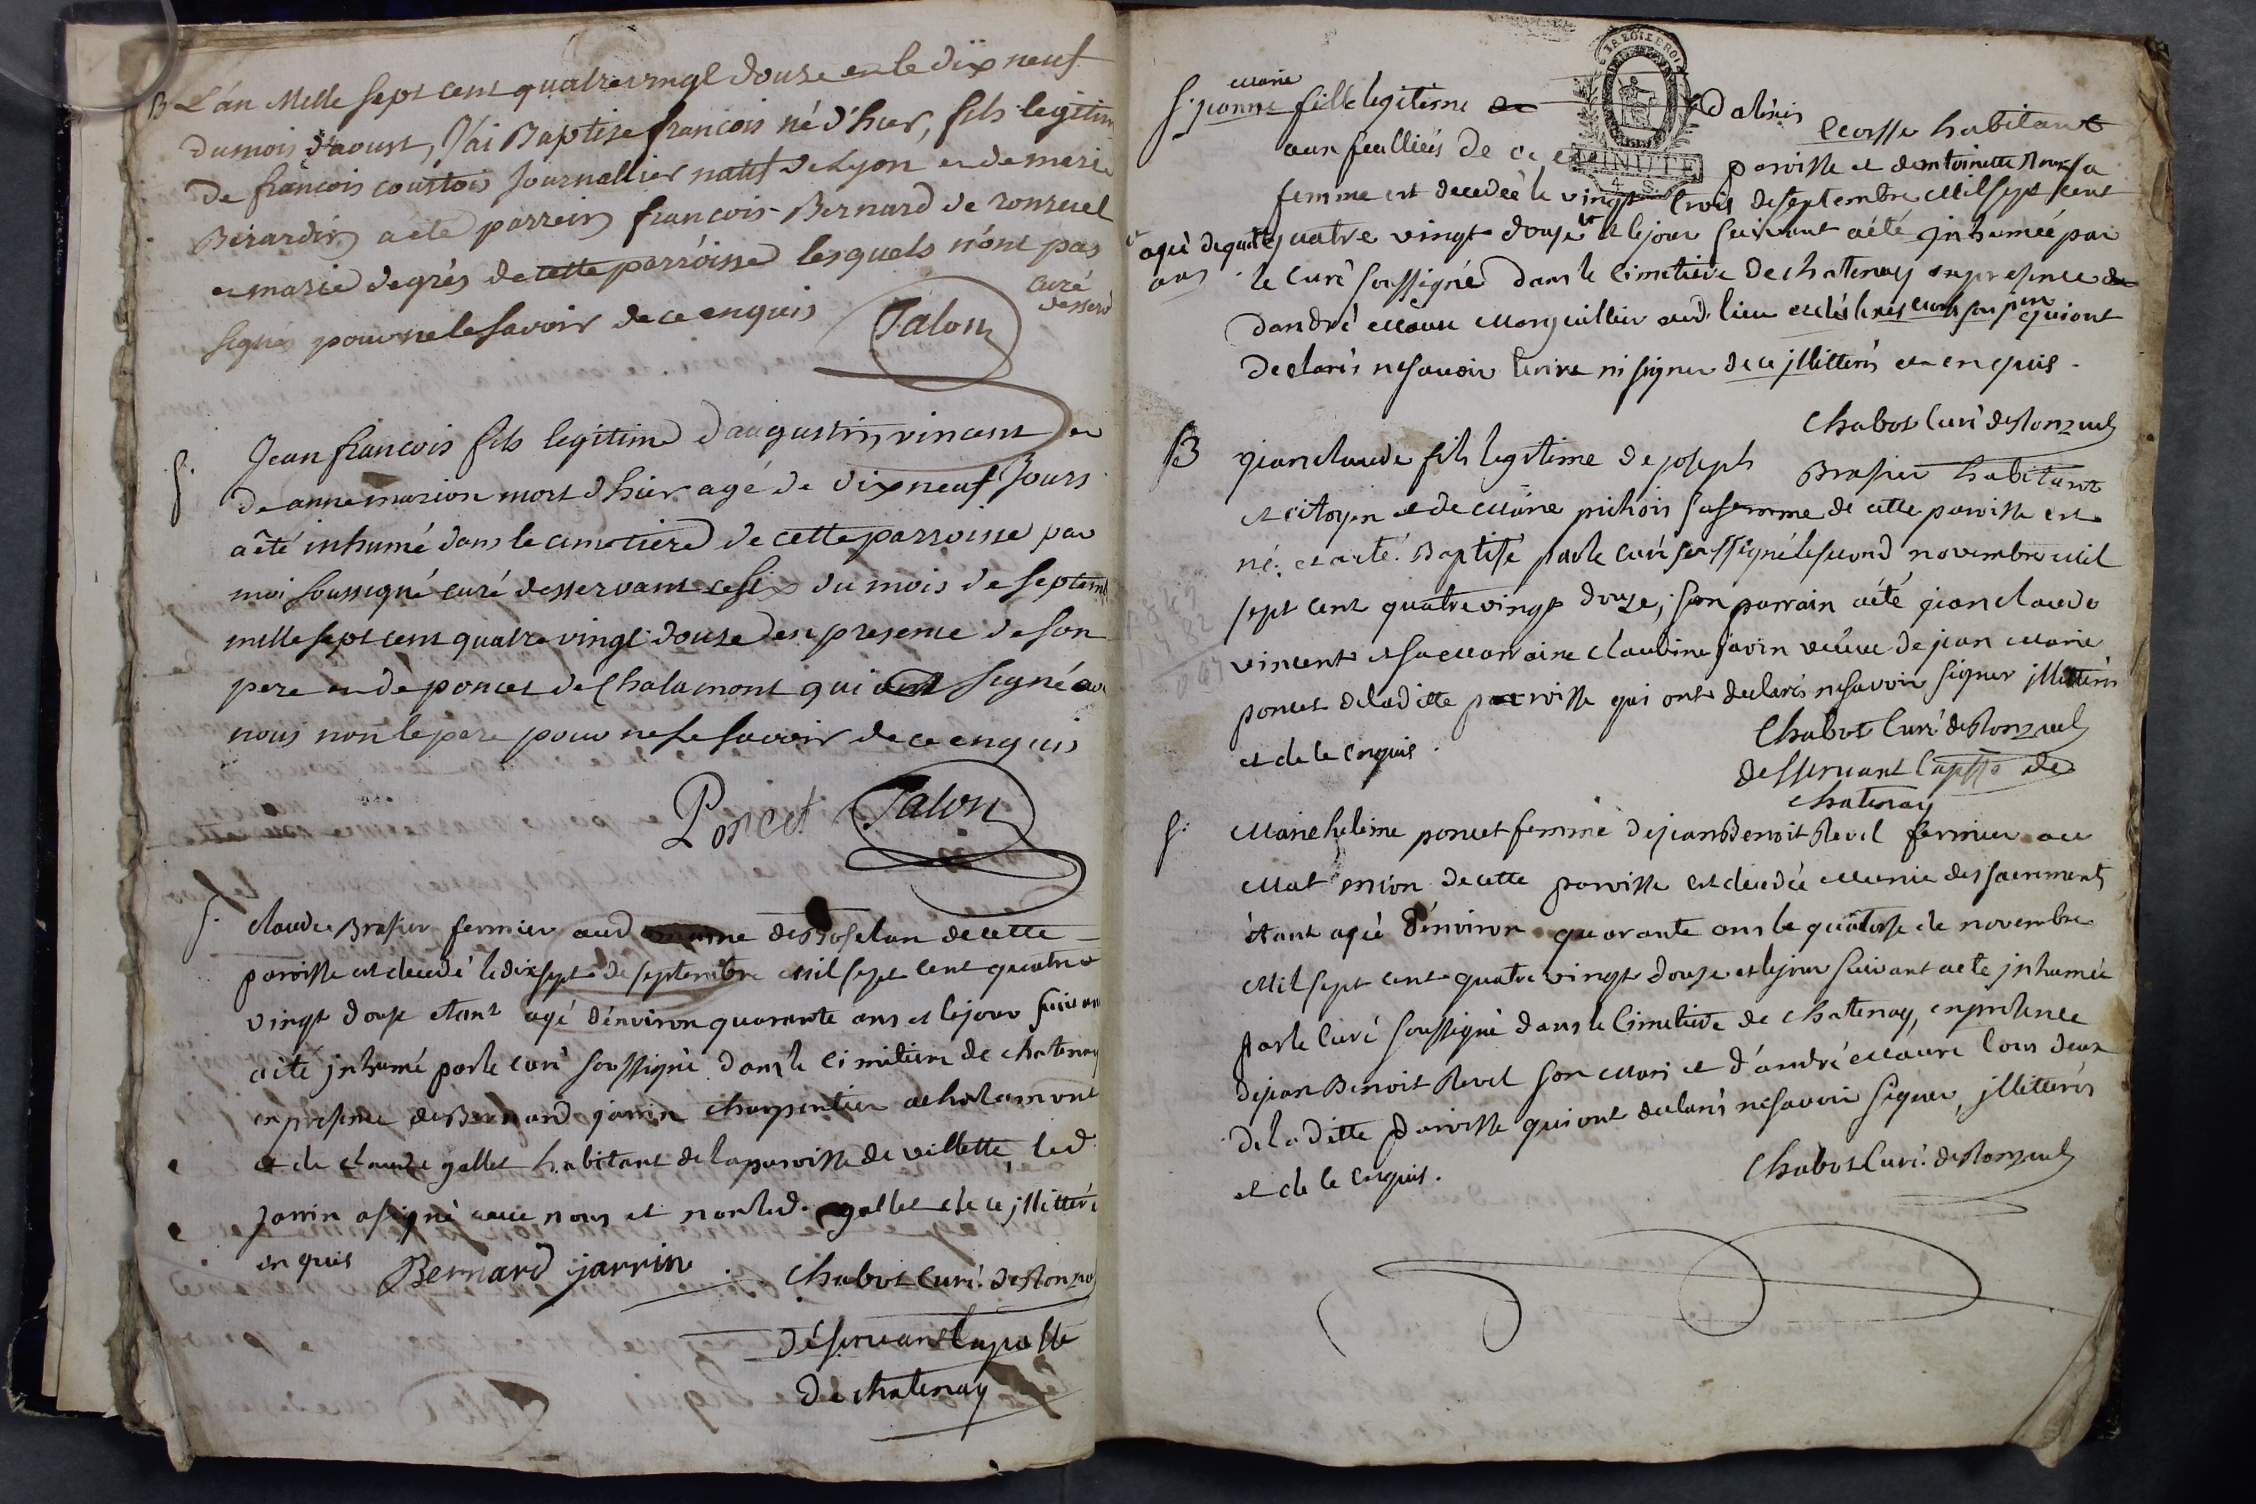 B L'an Mille sept cent quatre vingt douze en le dix neuf
du mois d'aoust, J'ai Baptise francois né d'hier, fils legitim
de francois courtois Journallier natif de Lyon et de marie
Berardin a ete parrein francois Bernard de ronzuel
et marie degrés de cette parroisse lesquels n'ont pas
signés pour ne le savoir de ce enquis Talon curé
desserv
S. Jean francois fils legitime d'augustin vincent et
de anne marion mort d'hier agé de dix neuf Jours
a été inhumé dans le cimetiere de cette parroisse par
moi soussigné curé desservant ce six du mois de septem
mille sept cent quatre vingt douze en presence de son
pere et de poncet de Chalamont qui ont signé avec
nous non le pere pour ne le savoir de ce enquis
Poncet Talon
S. claude Brasier fermier au d de cette
paroisse est decedé le dix sept de septembre mil sept cent quatre
vingt douze etant agé d'environ quarante ans et le jour suivant
a ete inhumé par le curé soussigné dans le cimitiere de chatenay
en presence de Bernard jarrin charpentier a chalamont
et de claude gallet habitant de la paroisse de villette, led.
jarrin a signé avec nous et non led. gallet de ce jllitteré
enquis Bernard jarrin Chabot Curé de Ronzuel
déservant la p
de chatenay
marie
S. jeanne fille legitime d'alexis ecosse habitant
LA LOI LE ROI
MINUTE
4. S.
aux feulliés de cette paroisse et d'entoinette Roux sa
femme est decedée le vingt trois de septembre Mil sept cent
agée de quatre quatre vingt douze et le jour suivant a été inhumée par
ans le curé soussigné dans le cimetiere de chatenay en presence
d'andré Maure Marguillier aud. lieu qui ont
declarés ne savoir lecrire ni signer de ce jllitterés et enquis.
Chabot Curé de Ronzuel
B jean claude fils legitime de joseph Brasier habitant
et citoyen et de Marie pichois sa femme de cette paroisse est
né et a eté Baptisé par le curé soussigné le second novembre mil
sept cent quatre vingt douze; son parrain a été jean claude
vincent et sa marraine claudine jarin veuve de jean Marie
poncet de la ditte paroisse qui ont declarés ne savoir signer jllitterés
et de le enquis. Chabot Curé de Ronzuel
desservant de
chatenay
S. Marie helene poncet femme de jean Benoit Revel fermier au
Mat de cette paroisse est decedée munie des sacrements
étant agée d'environ quarante ans le quatorse de novembre
Mil sept cent quatre vingt douze et le jour suivant a ete jnhumée
par le curé soussigné dans le Cimetiere de chatenay, en presence
de jean Benoit Revel son Mari et d'andré Maure tous deux
de la ditte paroisse qui ont declarés ne savoir signer, jllitterés
et de le enquis. Chabot Curé de Ronzuel